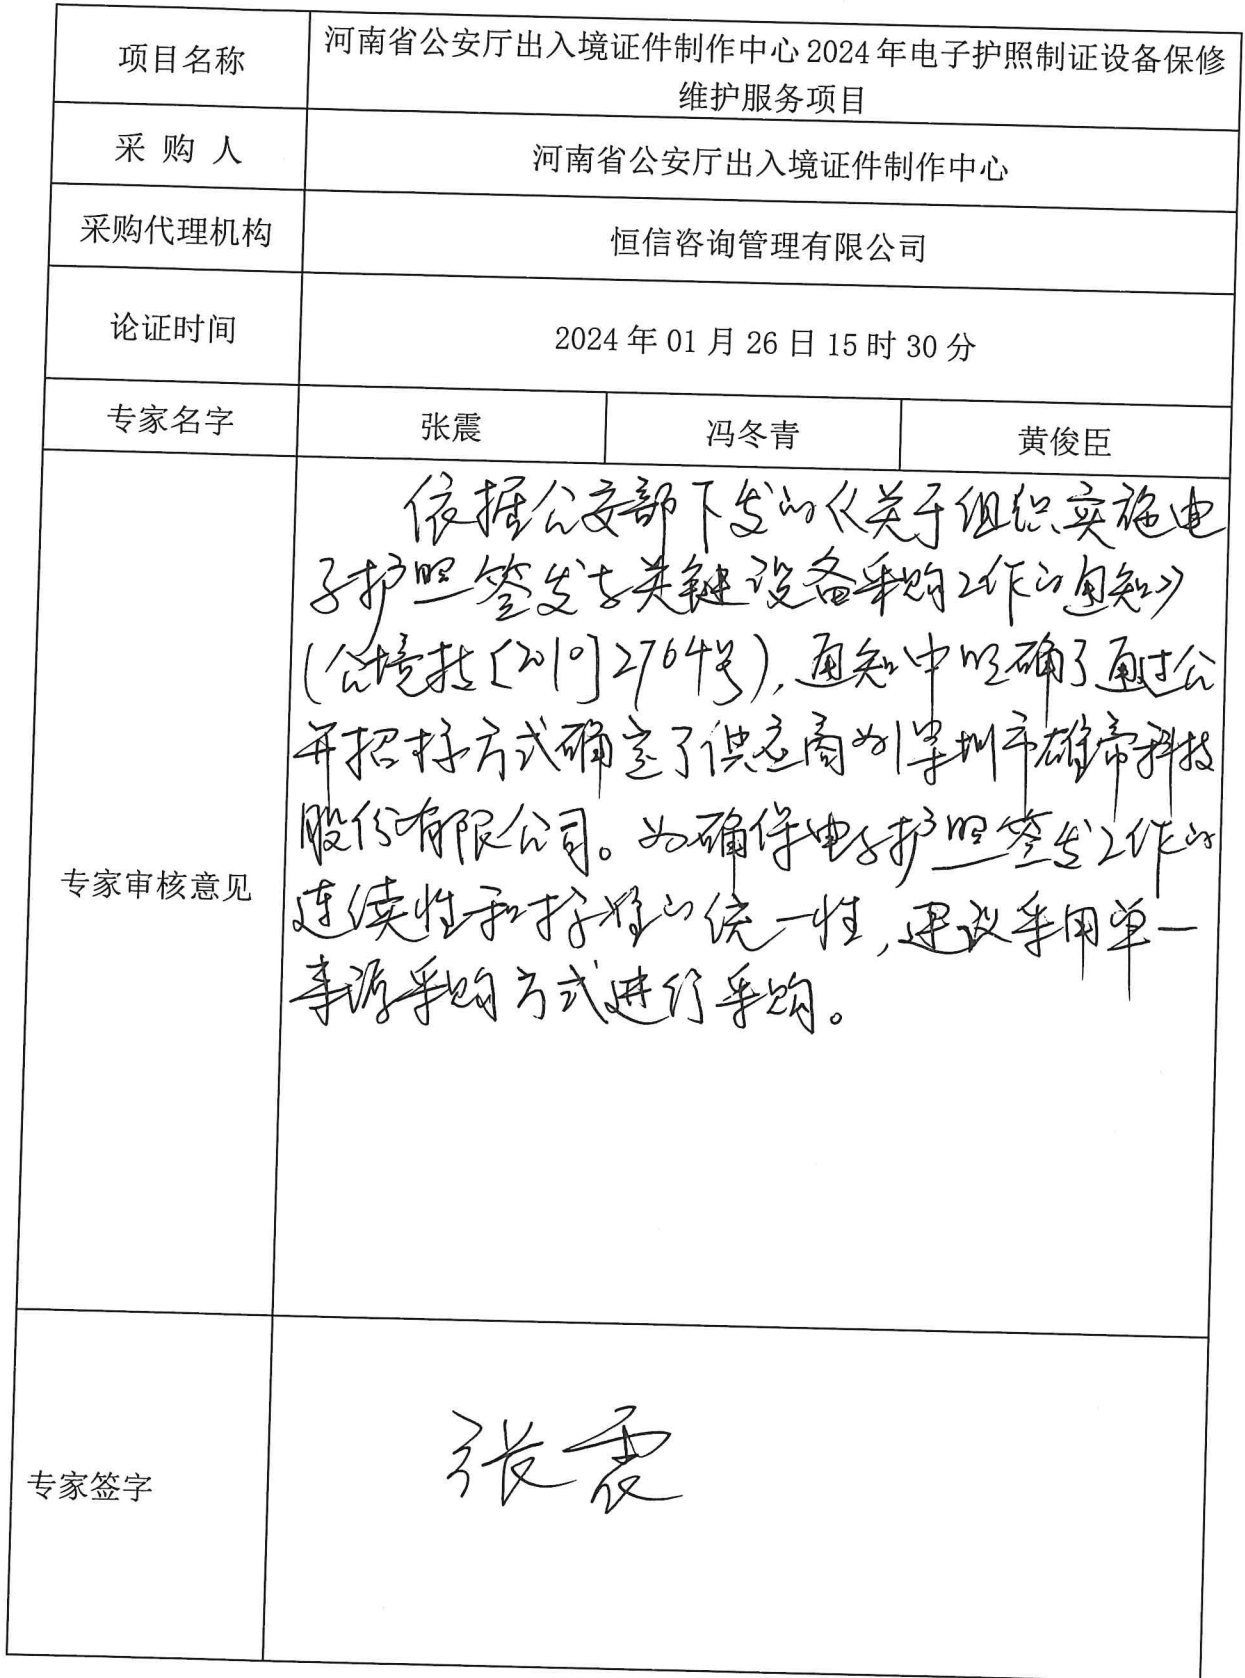 项目名称
河南省公安厅出入境证件制作中心2024年电子护照制证设备保修
维护服务项目
采 购 人
河南省公安厅出入境证件制作中心
采购代理机构
恒信咨询管理有限公司
论证时间
2024年01月26日15时30分
专家名字 张震 冯冬青 黄俊臣
专家审核意见
依据公安部下发的《关于组织实施电
子护照签发专关键设备采购工作的通知》
(公境技[2010]2764号),通知中明确了通过公
开招标方式确定了供应商为深圳市雄帝科技
股份有限公司。为确保电子护照签发工作的
连续性和标准的统一性,建议采用单一
来源采购方式进行采购。
专家签字
张震